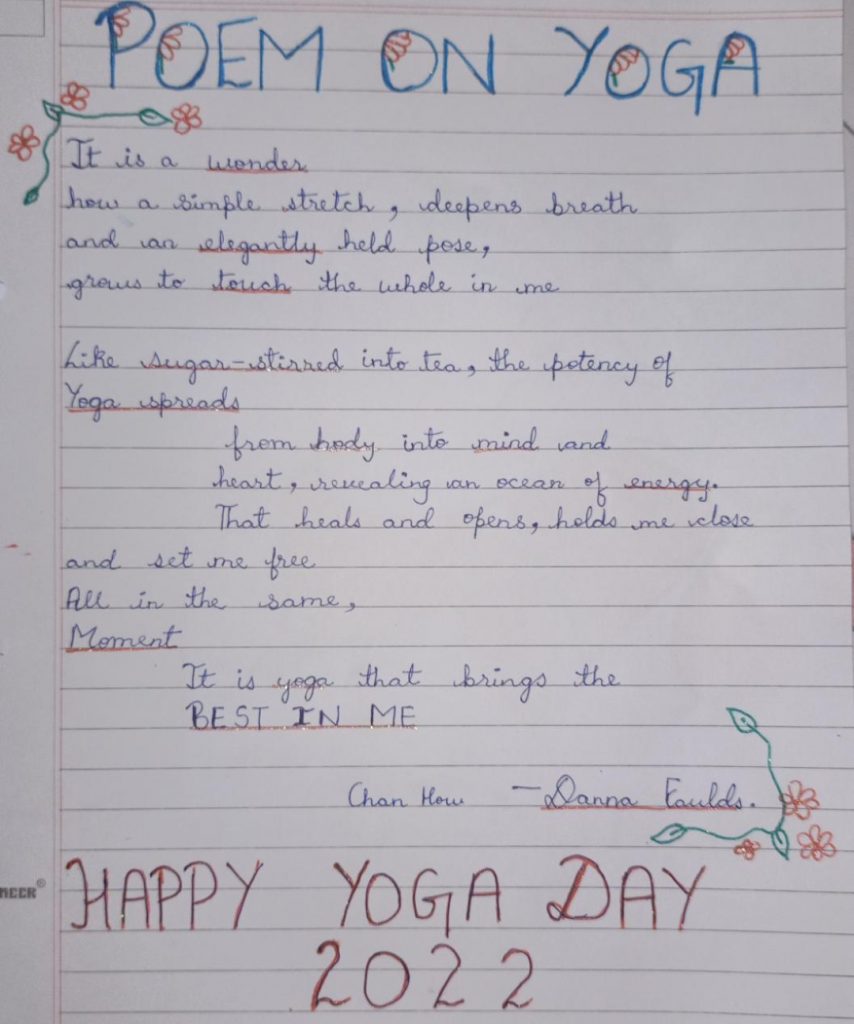 POEM ON YOGA
It is a wonder
how a simple stretch, deepens breath
and an elegantly held pose,
grows to touch the whole in me
Like sugar-stirred into tea, the potency of
Yoga spreads
from body into mind and
heart, revealing an ocean of energy.
That heals and opens, holds me close
and set me free
All in the same,
Moment
It is yoga that brings the
BEST IN ME
Chan How - Danna Faulds.
HAPPY YOGA DAY
2022